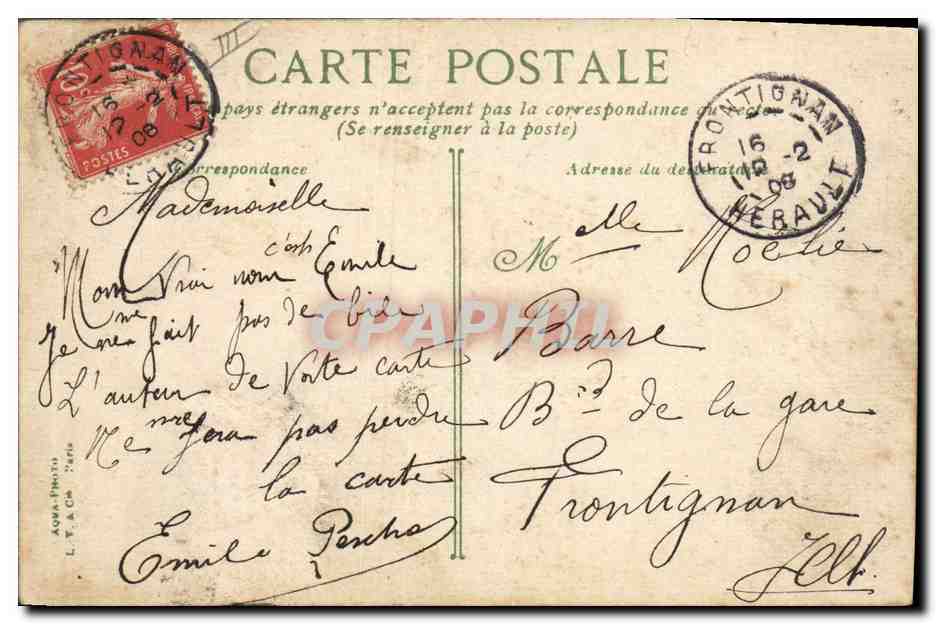 CARTE POSTALE
pays étrangers n'acceptent pas la correspondance au recto
(Se renseigner à la poste)
Correspondance
Adresse du destinataire
FRONTIGNAN
16
12 -2
08
HERAULT
POSTES
FRONTIGNAN
16
12 -2
08
HERAULT
III
Mademoiselle
c'est
Mon Vrai nom Emile
ne
Je fait pas de bile
L'auteur de Votre carte
Ne me fera pas perdre
la carte
Emile
M lle
Barre
Bd de la gare
Frontignan
Hlt.
AQUA-PHOTO
L. V. & Cie Paris
CPAPHIL